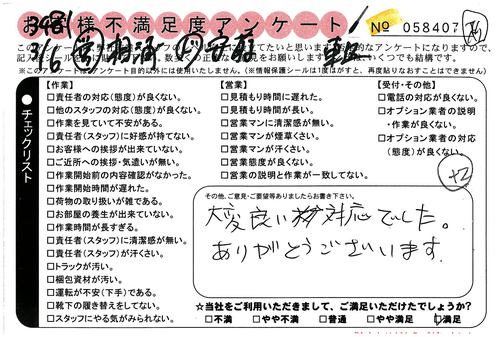 お客様不満足度アンケート
№ 058407
※このアンケートは目的以外には使用いたしません。(※情報保護シールは1度はがすと、再度貼りなおすことはできません)
チェックリスト
【作業】
□責任者の対応(態度)が良くない。
□他のスタッフの対応(態度)が良くない。
□作業を見ていて不安がある。
□責任者(スタッフ)に好感が持てない。
□お客様への挨拶が出来ていない。
□ご近所への挨拶・気遣いが無い。
□作業開始前の内容確認がなかった。
□作業開始時間が遅れた。
□荷物の取り扱いが雑である。
□お部屋の養生が出来ていない。
□作業時間が長すぎる。
□責任者(スタッフ)に清潔感が無い。
□責任者(スタッフ)が汗くさい。
□トラックが汚い。
□梱包資材が汚い。
□運転が不安(下手)である。
□靴下の履き替えをしてない。
□スタッフにやる気がみられない。
【営業】
□見積もり時間に遅れた。
□見積もり時間が長い。
□営業マンに清潔感が無い。
□営業マンが煙草くさい。
□営業マンが汗くさい。
□営業態度が良くない。
□営業の説明と作業が一致してない。
【受付・その他】
□電話の対応が良くない。
□オプション業者の説明
・作業が良くない。
□オプション業者の対応
(態度)が良くない。
+2
その他、ご意見・ご要望等ありましたらお書き下さい。
大変良い対応でした。
ありがとうございます
☆当社をご利用いただきまして、ご満足いただけたでしょうか?
□不満 □やや不満 □普通 □やや満足 □満足